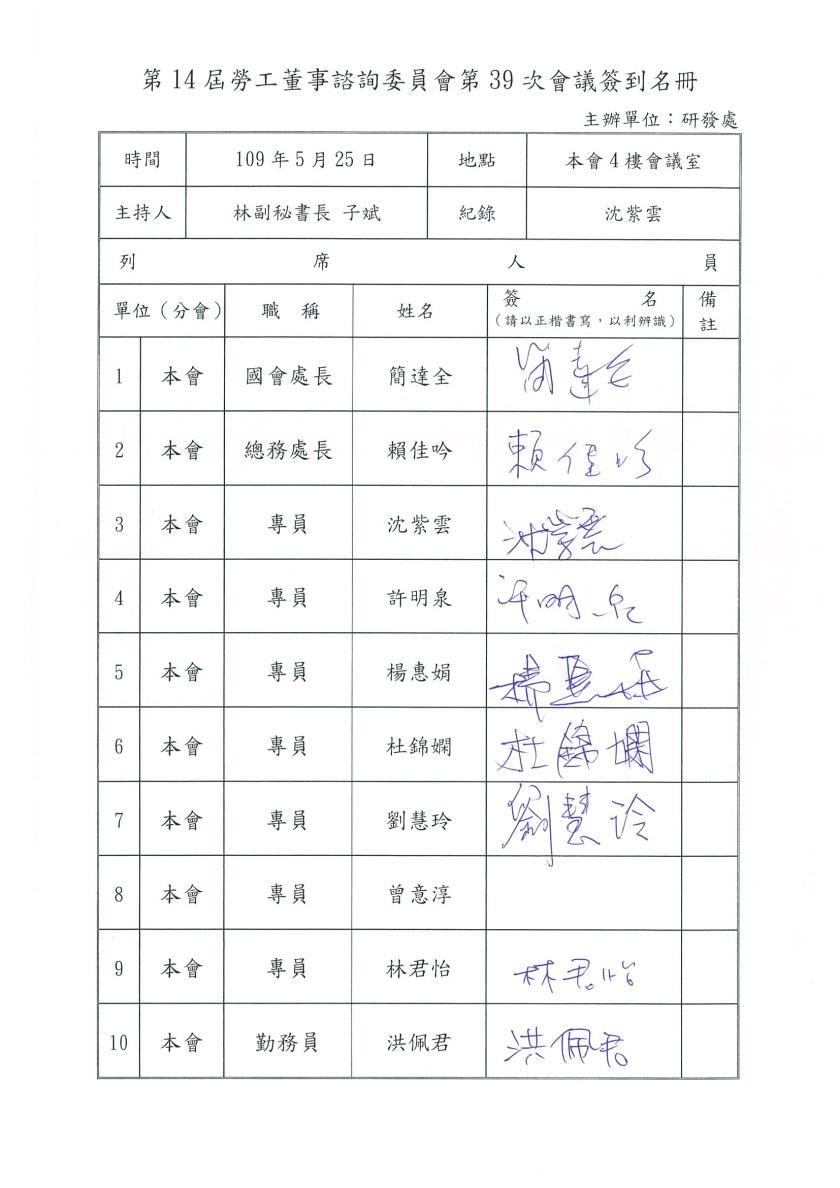 第 14 屆勞工董事諮詢委員會第 39 次會議簽到名冊
主辦單位：研發處
時間 109 年 5 月 25 日 地點 本會 4 樓會議室
主持人 林副秘書長 子斌 紀錄 沈紫雲
列 席 人 員
單位（分會） 職 稱 姓名 簽 名 備註
（請以正楷書寫，以利辨識）
1 本會 國會處長 簡達全 簡達全
2 本會 總務處長 賴佳吟 賴佳吟
3 本會 專員 沈紫雲 沈紫雲
4 本會 專員 許明泉 許明泉
5 本會 專員 楊惠娟 楊惠娟
6 本會 專員 杜錦嫻 杜錦嫻
7 本會 專員 劉慧玲 劉慧玲
8 本會 專員 曾意淳
9 本會 專員 林君怡 林君怡
10 本會 勤務員 洪佩君 洪佩君